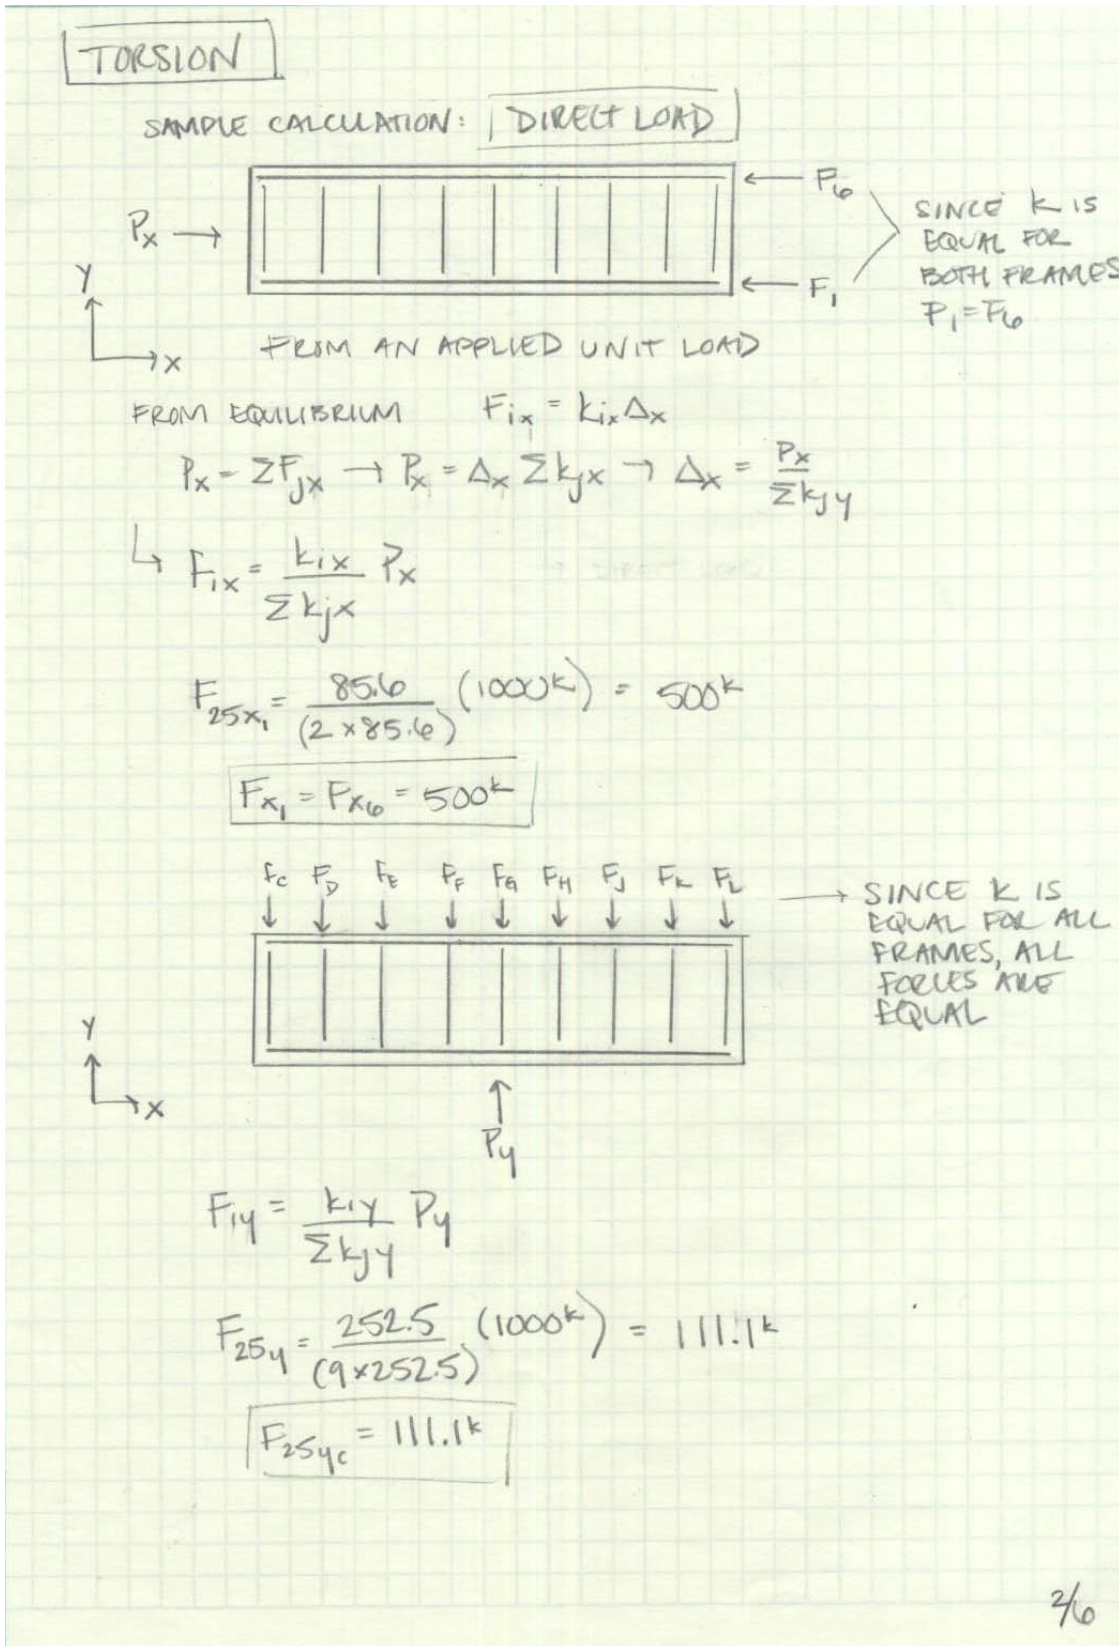 TORSION
SAMPLE CALCULATION: DIRECT LOAD
Px → ← F6
← F1
SINCE k IS
EQUAL FOR
BOTH FRAMES
F1 = F6
Y
X
FROM AN APPLIED UNIT LOAD
FROM EQUILIBRIUM Fix = kix Δx
Px = ΣFjx → Px = Δx Σkjx → Δx = Px / Σkjy
↳ Fix = kix / Σkjx Px
F25x1 = 85.6 / (2 x 85.6) (1000k) = 500k
Fx1 = Fx6 = 500k
FC FD FE FF FG FH FJ FK FL
→ SINCE k IS
EQUAL FOR ALL
FRAMES, ALL
FORCES ARE
EQUAL
Y
X
Py
Fiy = kiy / Σkjy Py
F25y = 252.5 / (9 x 252.5) (1000k) = 111.1k
F25yc = 111.1k
2/6